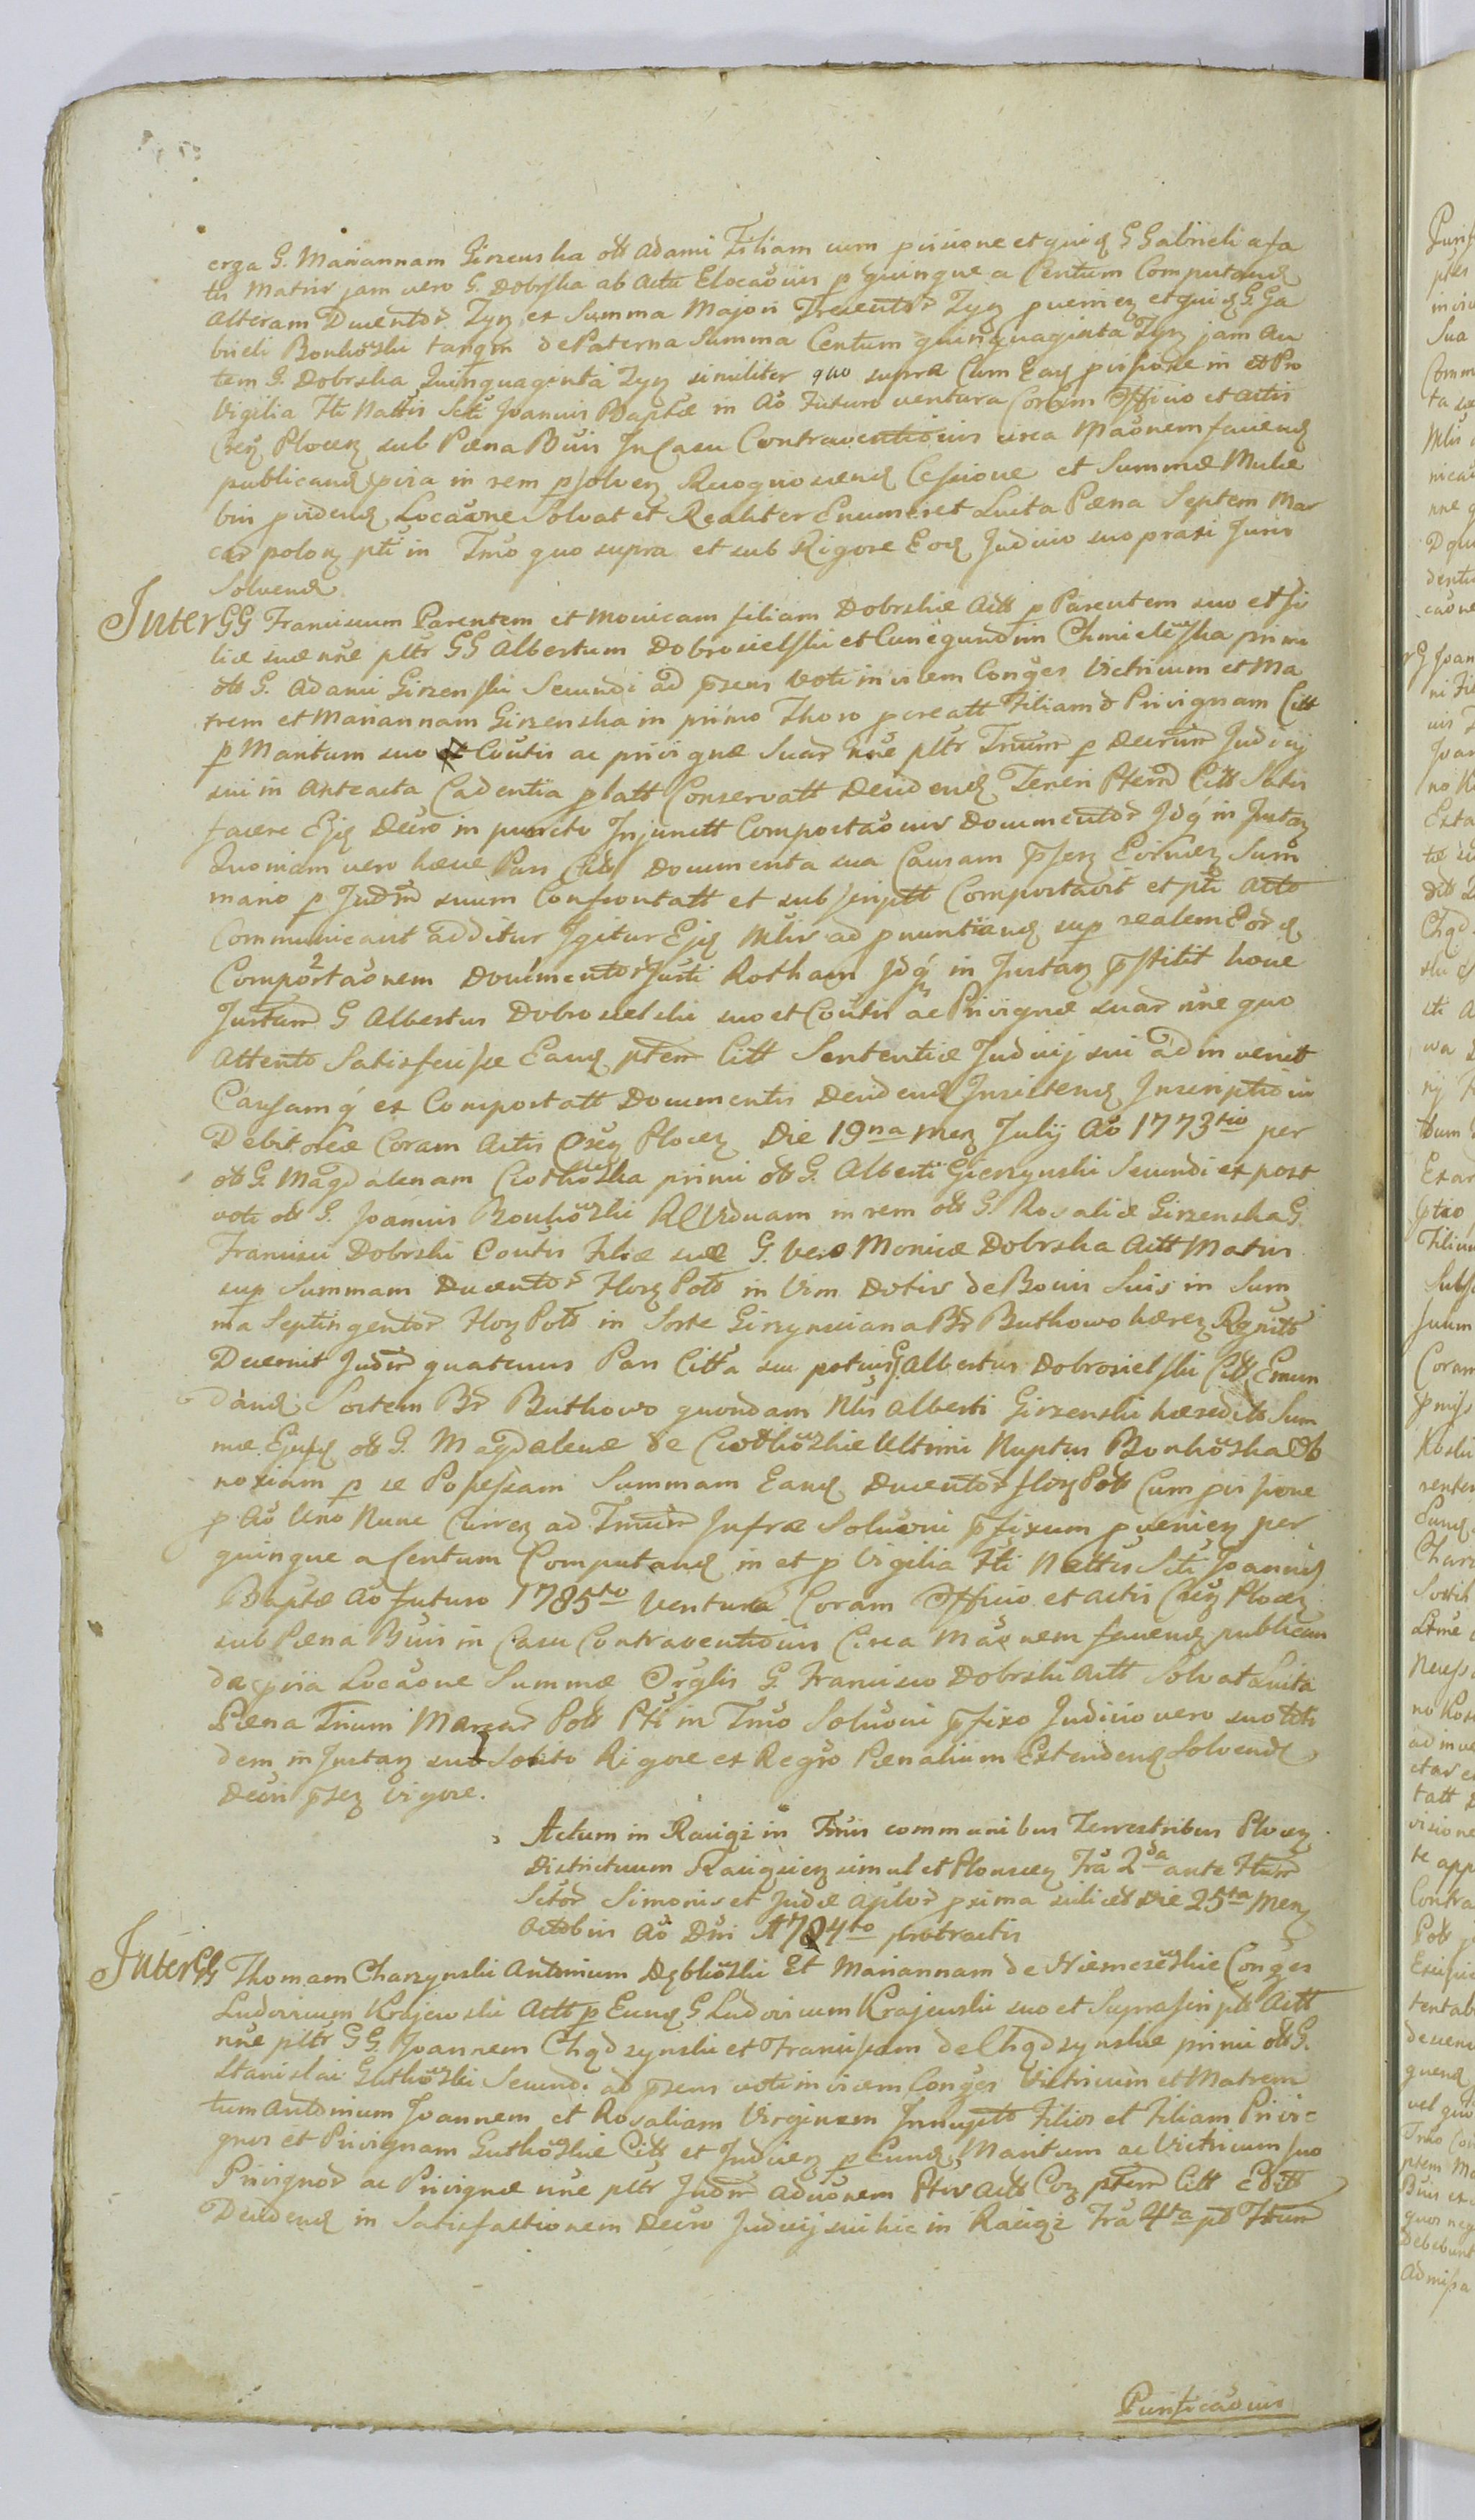 erga G. Mariannam Girzenska olt Adami Filiam cum pvisione et quid G Gabrieli asa
tis Matris jam vero G. Dobrska ab Actu Elocaõnis p quinque a Centum Computand
alteram Ducentor Tyn ex Summa Majori Trecentor Tyn pvenien et quid G. Ga
brieli Bonkowski tanqm de Paterna Summa Centum quinquaginta Tyn jam au
tem G. Dobrska Quinquaginta Tyn similiter quo supra Cum Ead pvisione in et Pro
Vigilia Fti Nattis Scti Joannis Baptæ in Ao Futuro ventura Coram Officio et actis
Cren Plocen sub Pæna Buis In Casu Contraventionis circa Maõnem faciend
publicand pvia in rem psolven Recognoscend Cessione et Summæ Mulie
bri pvidend Locaõne Solvat et Realiter Enumeret Luita Pæna Septem Mar
car polon pti in Tmo quo supra et sub Rigore Eod Judicio suo praxi Juris
Solvend.
Inter GG Franciscum Parentem et Monicam filiam Dobrskie Actt p Parentem suo et fi
liæ suæ nne pltr GG Albertum Dobrosielski et Cunegundim Chmielewska primi
olt G. Adami Girzenski Secundi ad psens voti invicem Conges Vitricum et Ma
trem et Mariannam Girzenska in primo Thoro pcreatt Filiam & Privignam Citt
p Maritum suo et Coutis ac privignæ Suar nne pltr Tmum p Decrum Judicij
sui in Anteacta Cadentia platt Conservatt Decidend Teneri Ptem Citt Satis
facere Ejd Decro in puncto Injunctt Comportaõnis Documentor Idq in Instan
Quoniam vero hæce Pars Citt Documenta sua Causam psen Concernen Sum
mario p Judm suum Confrontatt et subscriptt Comportavit et pti Acto
Communicavit additur Igitur Ejd Mlis ad pnuntiand sup realem Eord
Comportaõnem Documentor Justi Rotham Idq in Instan pstitit hoce
Justum G Albertus Dobrosielski suo et Coutis ac Privignæ suar nne quo
attento Satisfecisse Eand ptem Citt Sententiæ Judicij sui adinvenit
Causamq ex Comportatt Documentis Decidend Insistend Inscriptioni
Debitoriæ Coram Actis Cren Plocen Die 19na Men Julij Ao 1773tio per
olt G. Magdalenam Ciotkowska primi olt G. Alberti Gierzynski Secundi ex post
voti olt G. Joannis Bonkowski Rel Viduam in rem olt G. Rosaliæ Girzenska G.
Francisci Dobrski Coutis Filiæ suæ G. Vero Monicæ Dobrska Actt Matris
sup Summam Ducentor Floren Polt in Vim Dotis de Bonis Suis in Sum
ma Septingentor Flon Polt in Sorte Girzynsciana Br Buthowo hæren Rgnitt
Decernit Judm quatenus Pars Citta seu potius G Albertus Dobrosielski Citt Emun
dand Sortem Br Buthowo quondam Nlis Alberti Girzenski hæredit Sum
mæ Ejusd olt G. Magdalenæ de Ciotkowskie Ultimi Nuptus Bonkowska Ob
noxiam p se Possessam Summam Eand Ducentor Flon Polt Cum pvisione
p Ao Uno Nunc Curren ad Tmum Infræ Soluoni pfixum pvenien per
quinque a Centum Computand in et p Vigilia Fti Nattis Scti Joannis
Baptæ Ao futuro 1785to ventura Coram Officio et actis Cren Plocen
sub Pæna Buis in Casu Contraventionis Circa Maõnem faciend publican
da pvia Locaõne Summæ Orglis G. Francisco Dobrski Actt Solvat Luita
Pæna Trium Marcar Polt Pti in Tmo Soluoni pfixo Judicio vero suo toti
dem in Instan suo Solito Rigore ex Regro Pænalium Extendend Solvend
Decri psen Vigore.
Actum in Raciąż in Tmis communibus Terrestribus Plocen
Districtuum Raciązien simul et Plonscen Fra 2da ante Ftum
Sctor Simonis et Judæ Aplor pxima scilicet Die 25ta Men
Octobris Ao Dni 1784to protractis
Inter GG Thomam Charzynski Antonium Dębkowski Et Mariannam de Niemczewskie Conges
Ludovicum Krajewski Actt p Eund G Ludovicum Krajewski suo et Suprascriptt Actt
nne pltr GG. Joannem Chądzynski et Franciscam de Chądzynskie primi olt G.
Stanislai Gutkowski Secundi ad psens voti invicem Conges Vitricum et Matrem
tum Antonium Joannem et Rosaliam Virginem Innuptt Filios et Filiam Privi=
gnos et Privignam Gutkowskie Citt et Judicen p Eund Maritum ac Vitricum suo
Privignor ac Privignæ nne pltr Judm advonem Ptis Actt Con ptem Citt Editt
Decidend in Satisfactionem Decro Judicij sui hic in Raciąż Fra 4ta pt Ftum
Purificaõnis